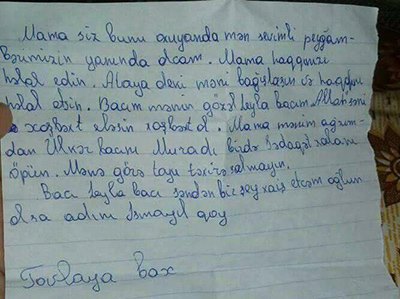 Mama siz bunu oxuyanda mən sevimli peyğəm-
bərimizin yanında olcam. Mama haqqınızı
halal edin. Ataya deki məni bağışlasın və haqqını
halal etsin. Bacım mənim gözəl Leyla bacım Allah səni
xoşbəxt eləsin xoşbəxt ol. Mama mənim ağzım-
dan Ülkər bacımı Muradı birdə Sədaqət xalamı
öpün. Mənə görə toyu təxirə salmayın.
Bacı Leyla bacı səndən bir şey xaiş etcəm oğlun
olsa adını İsmayıl qoy
bax